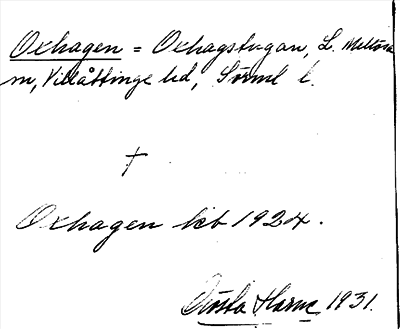 Oxhagen = Oxhagstugan, L. Mellösa
sn, Villåttinge hd, Sörml l.
†
Oxhagen kb 1924.
Gösta Harne 1931.